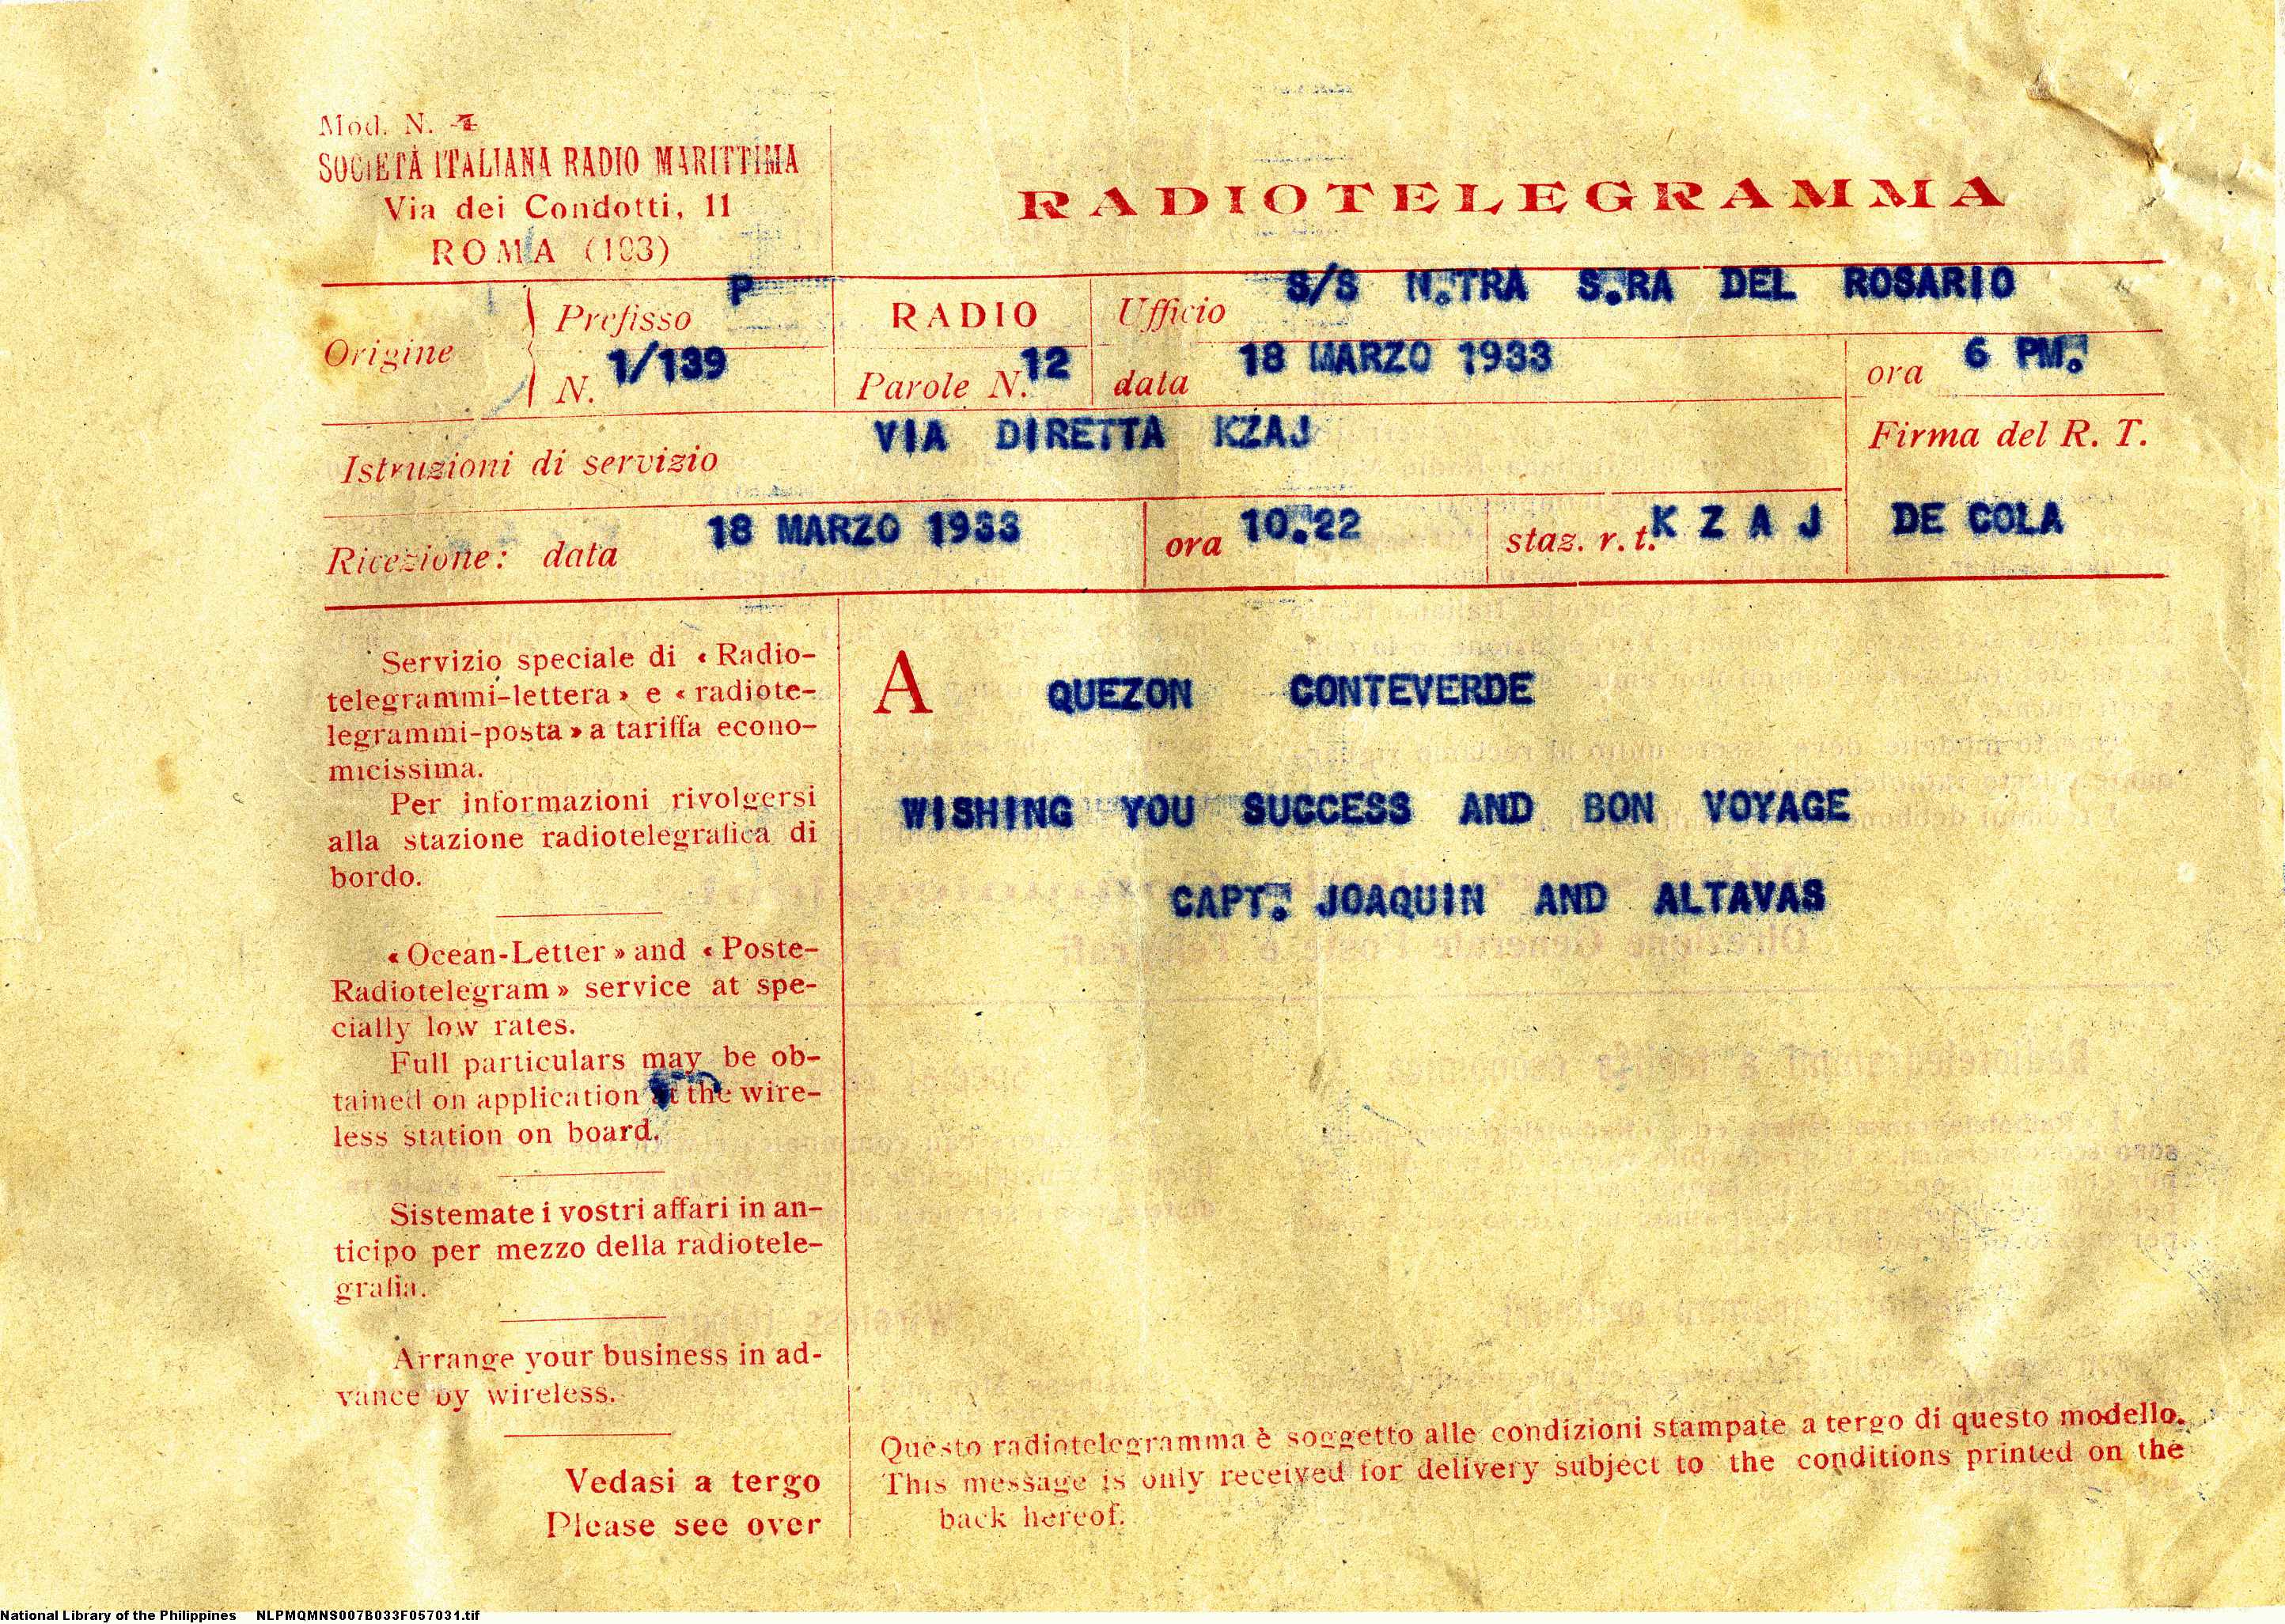 Mod. N. 4
SOCIETÀ ITALIANA RADIO MARITTIMA
Via dei Condotti, 11
ROMA (103)
RADIOTELEGRAMMA
Origine
Prefisso P
N. 1/139
RADIO
Parole N. 12
Ufficio S/S N.TRA S.RA DEL ROSARIO
data 18 MARZO 1933
ora 6 PM.
Istruzioni di servizio VIA DIRETTA KZAJ
Firma del R. T.
DE COLA
Ricezione: data 18 MARZO 1933
ora 10.22
staz. r. t. K Z A J
Servizio speciale di « Radio-
telegrammi-lettera » e « radiote-
legrammi-posta » a tariffa econo-
micissima.
Per informazioni rivolgersi
alla stazione radiotelegrafica di
bordo.
« Ocean-Letter » and « Poste-
Radiotelegram » service at spe-
cially low rates.
Full particulars may be ob-
tained on application at the wire-
less station on board.
Sistemate i vostri affari in an-
ticipo per mezzo della radiotele-
grafia.
Arrange your business in ad-
vance by wireless.
Vedasi a tergo
Please see over
A QUEZON CONTEVERDE
WISHING YOU SUCCESS AND BON VOYAGE
CAPT. JOAQUIN AND ALTAVAS
Questo radiotelegramma è soggetto alle condizioni stampate a tergo di questo modello.
This message is only received for delivery subject to the conditions printed on the
back hereof.
National Library of the Philippines NLPMQMNS007B033F057031.tif